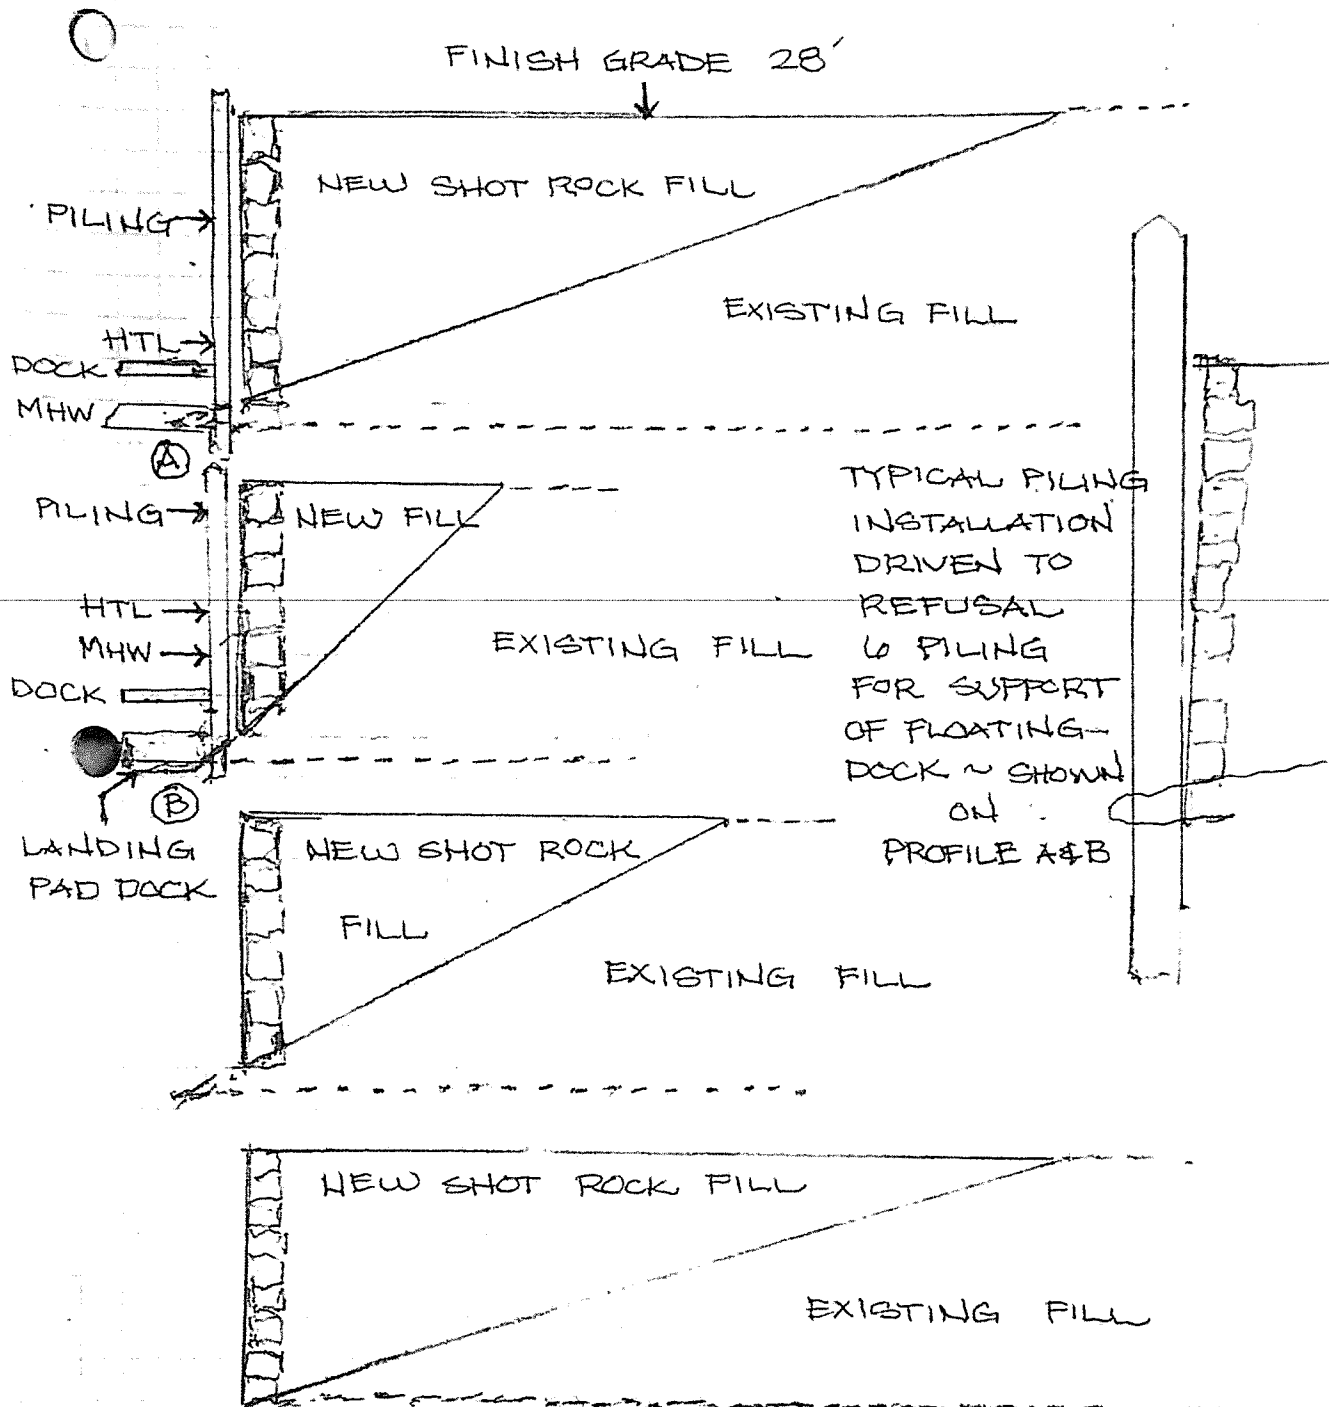 FINISH GRADE 28'
NEW SHOT ROCK FILL
PILING
EXISTING FILL
HTL
DOCK
MHW
A
PILING
NEW FILL
HTL
MHW
EXISTING FILL
DOCK
B
LANDING
PAD DOCK
TYPICAL PILING
INSTALLATION
DRIVEN TO
REFUSAL
6 PILING
FOR SUPPORT
OF FLOATING-
DOCK ~ SHOWN
ON
PROFILE A&B
NEW SHOT ROCK
FILL
EXISTING FILL
NEW SHOT ROCK FILL
EXISTING FILL